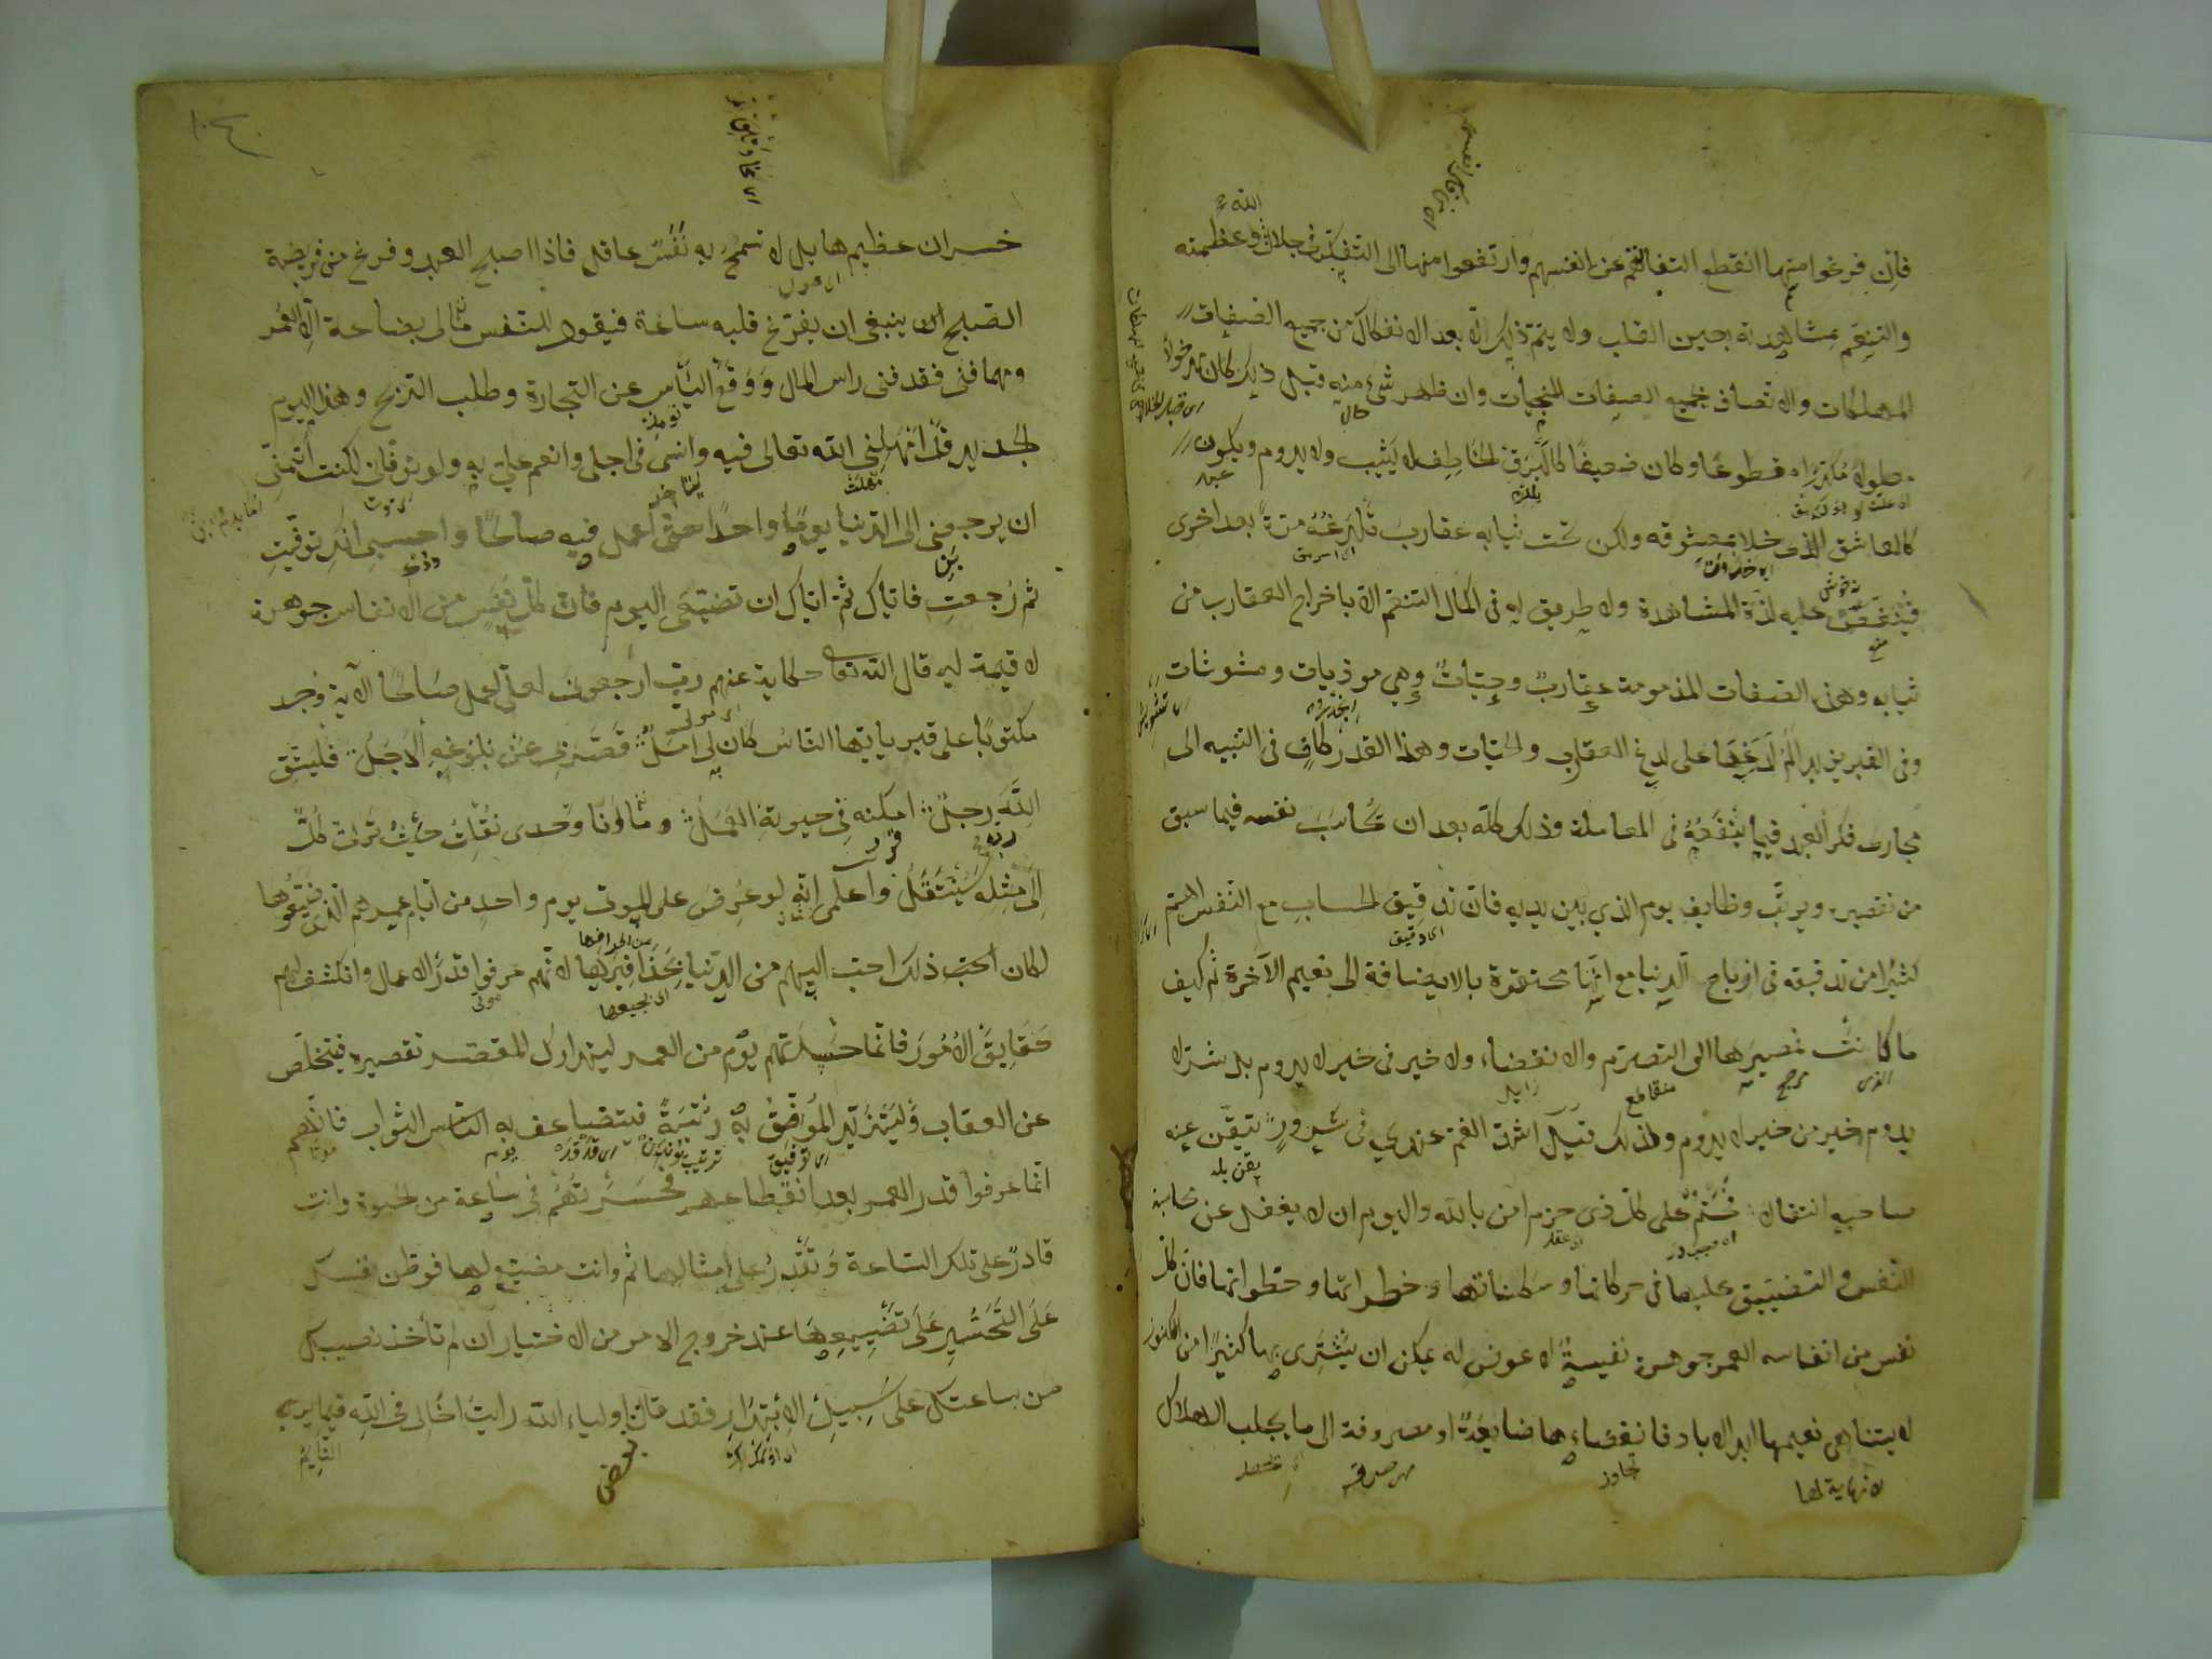 فان فرغوا منها انقطع التفاتهم عن انفسهم وارتفعوا منها الى التفكر في جلال الله وعظمته
والتنعم بمشاهدته بعين القلب ولا يتم ذلك الا بعد الانفكاك من جميع الصفات
المهلكات والاتصاف بجميع الصفات المنجيات وان ظهر شيء منه قبل ذلك كان مدخولا
معلولا مكدرا مقطوعا وكان ضعيفا كالبرق الخاطف لا يثبت ولا يدوم ويكون
كالعاشق الذي خلا بمعشوقه ولكن تحت ثيابه عقارب تلدغه مرة بعد اخرى
فينغص عليه لذة المشاهدة ولا طريق له في اكمال التنعم الا باخراج العقارب من
ثيابه وهذه الصفات المذمومة عقارب وحيات وهي موذيات ومشوشات
وفي القبر يزيد الم لدغها على لدغ العقارب والحيات وهذا القدر كاف في التنبيه الى
مجاري فكر العبد فيما ينفعه في المعاملة وذلك كله بعد ان يحاسب نفسه فيما سبق
من تقصيره ويرتب وظايف يوم الذي بين يديه فان تدقيق الحساب مع النفس اهم
كثيرا من تدقيقه في ارباح الدنيا مع انها محتقرة بالاضافة الى نعيم الآخرة ثم كيف
ما كانت فمصيرها الى التصرم والانقضاء ولا خير في خير لا يدوم بل شر لا
يدوم خير من خير لا يدوم ولذلك قيل اشد الغم عندي في سرور تيقن عنه
صاحبه انتقالا فحتم على كل ذي حزم امن بالله واليوم ان لا يغفل عن محاسبة
النفس والتضييق عليها في حركاتها وسكناتها وخطراتها وخطواتها فان كل
نفس من انفاس العمر جوهرة نفيسة لا عوض له يمكن ان يشترى بها كثيرا من الكنوز
لا يتناهى نعيمها ابد الاباد فانقضاءها ضايعة او مصروفة الى ما يجلب الهلاك
لا نهاية لها
تجاوز
خسران عظيم هايل لا تسمح به نفس عاقل فاذا اصبح العبد وفرغ من فريضة
الصبح ينبغي ان يفرغ قلبه ساعة فيقول للنفس مالي بضاعة الا العمر
ومهما فني فقد فني راس المال ووقع اليأس عن التجارة وطلب الربح وهذا اليوم
الجديد قد امهلني الله تعالى فيه وانسى في اجلي وانعم علي به ولو توفاني لكنت اتمنى
ان يرجعني الى الدنيا يوما واحدا حتى اعمل فيه صالحا واحسبي انك توفيت
ثم رجعت فاياك ثم اياك ان تضيعي اليوم فان كل نفس من الانفاس جوهرة
لا قيمة له قال الله تعالى حكاية عنهم رب ارجعون لعلي اعمل صالحا الآية وجد
مكتوبا على قبر يا ايها الناس كان لي امل قصر بي عن بلوغه الاجل فليتق
الله ربه رجل امكنه في حيوته العمل وما انا وحدي نقلت حيث ترى كل
الى مثله سينتقل واعلمي انه لو عرض على الموتى يوم واحد من ايام عمرهم الذي ضيعوها
لكان احب ذلك احب اليهم من الدنيا بحذافيرها لانهم عرفوا قدر الاعمال وانكشف لهم
حقايق الامور فانما حسرتهم يوم من العمر ليتدارك المقصر تقصيره فيتخلص
عن العقاب وليتزيد الموفق به رتبة فيتضاعف به الثواب فانهم
انما عرفوا قدر العمر بعد انقطاعهم فحسرتهم في ساعة من الحيوة وانت
قادر على تلك الساعة وتقدر على امثالها ثم وانت مضيع لها فوطن نفسك
على التحسر على تضييعها عند خروج الامر من الاختيار ان لم تأخذ نصيبك
من ساعتك على سبيل الابتدار فقد قال بعض اولياء الله رايت اخا لي في الله فيما يرى
النايم